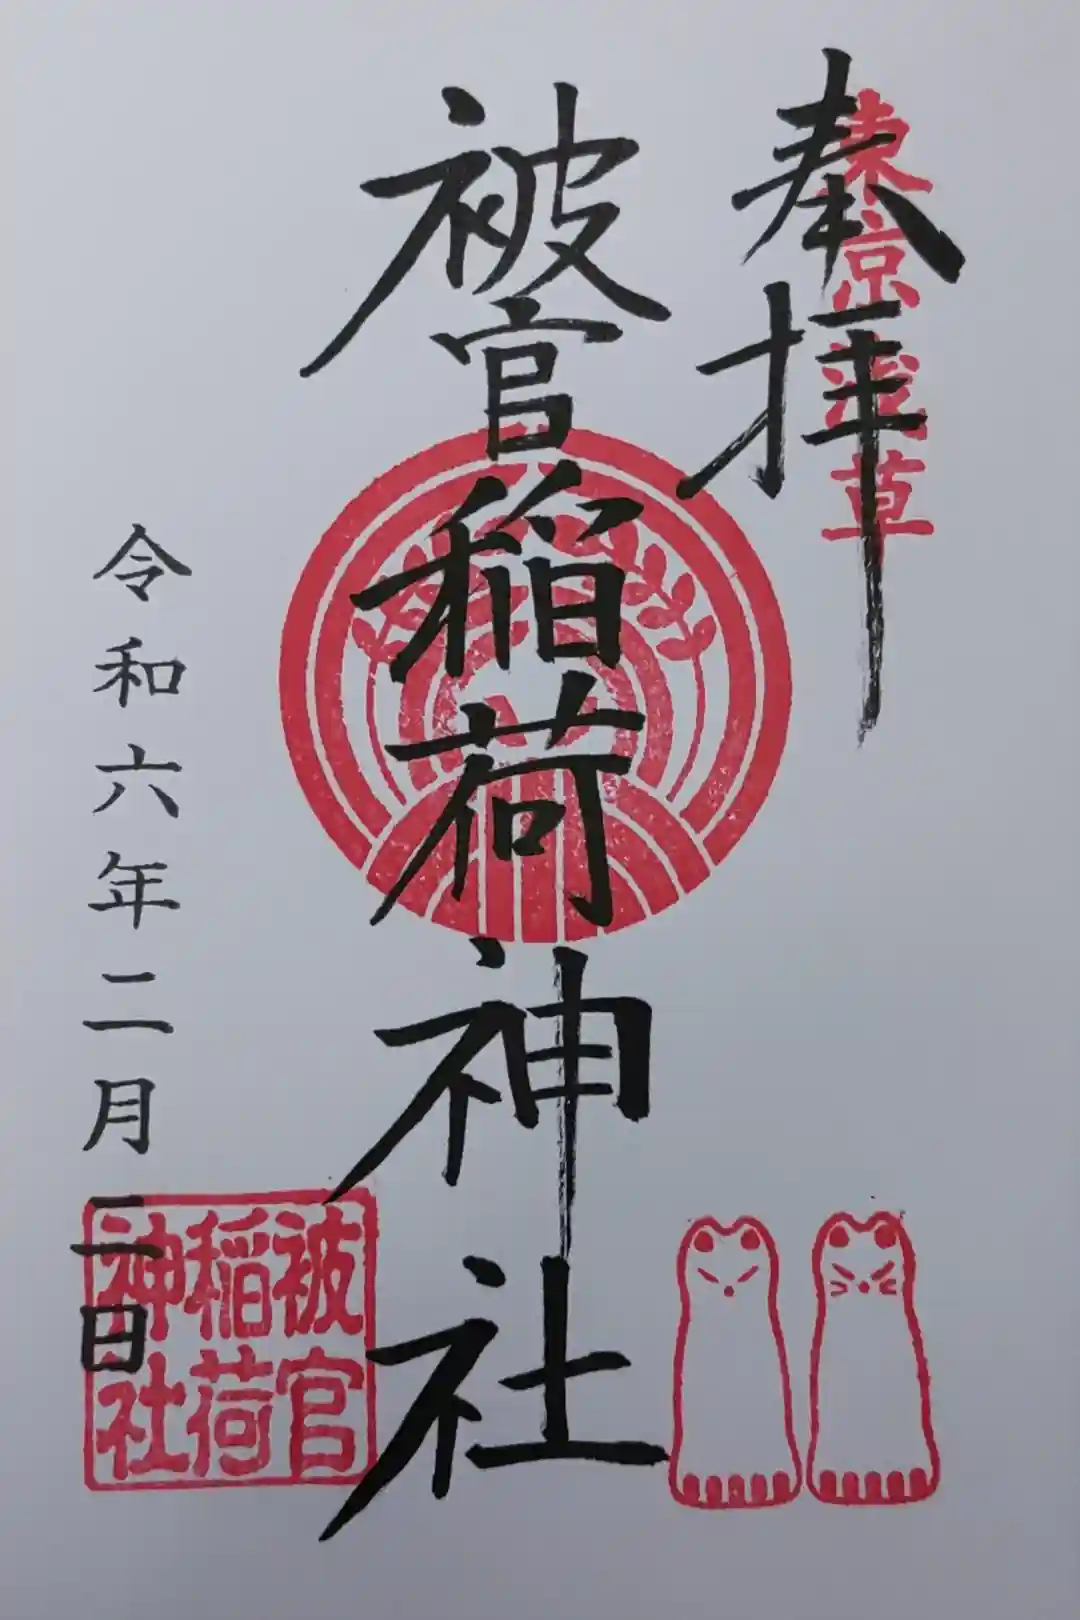 奉拝
東京浅草
被官稲荷神社
令和六年二月二日
被官
稲荷
神社